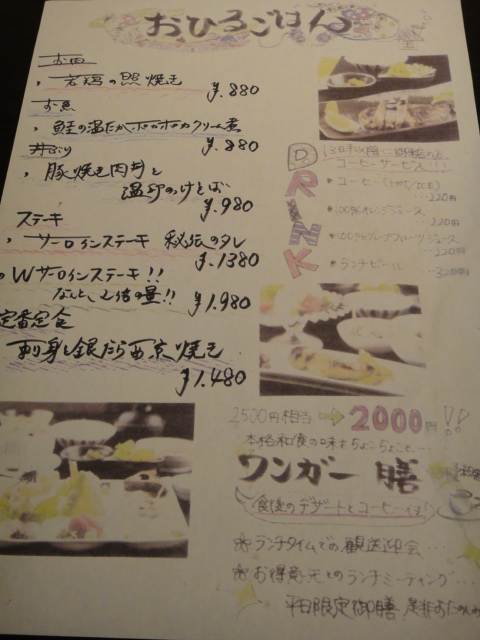 おひるごはん
お肉
、若鶏の照焼き
¥.880
お魚
、鮭の温たかポカポカクリーム煮
¥.880
丼ぶり
、豚焼き肉丼と
温玉のけそば
¥.980
ステーキ
、サーロインステーキ 秘伝のタレ
¥.1380
Wサーロインステーキ!!
なんと、2倍の量!!
¥1.980
定番定食
刺身と銀だら西京焼き
¥1.480
DRINK
コーヒーサービス!!!
*コーヒー(HOT/ICE)
…220円
*100%オレンジジュース
…220円
*100%グレープフルーツジュース
…220円
*ランチビール
…320円
2500円相当⇒2000円!!
本格和食の味をちょこちょこと…
ワンガー膳
食後のデザートとコーヒー付!
ランチタイムでの歓送迎会…
お得意先とのランチミーティング…
平日限定御膳 是非おたのしみ